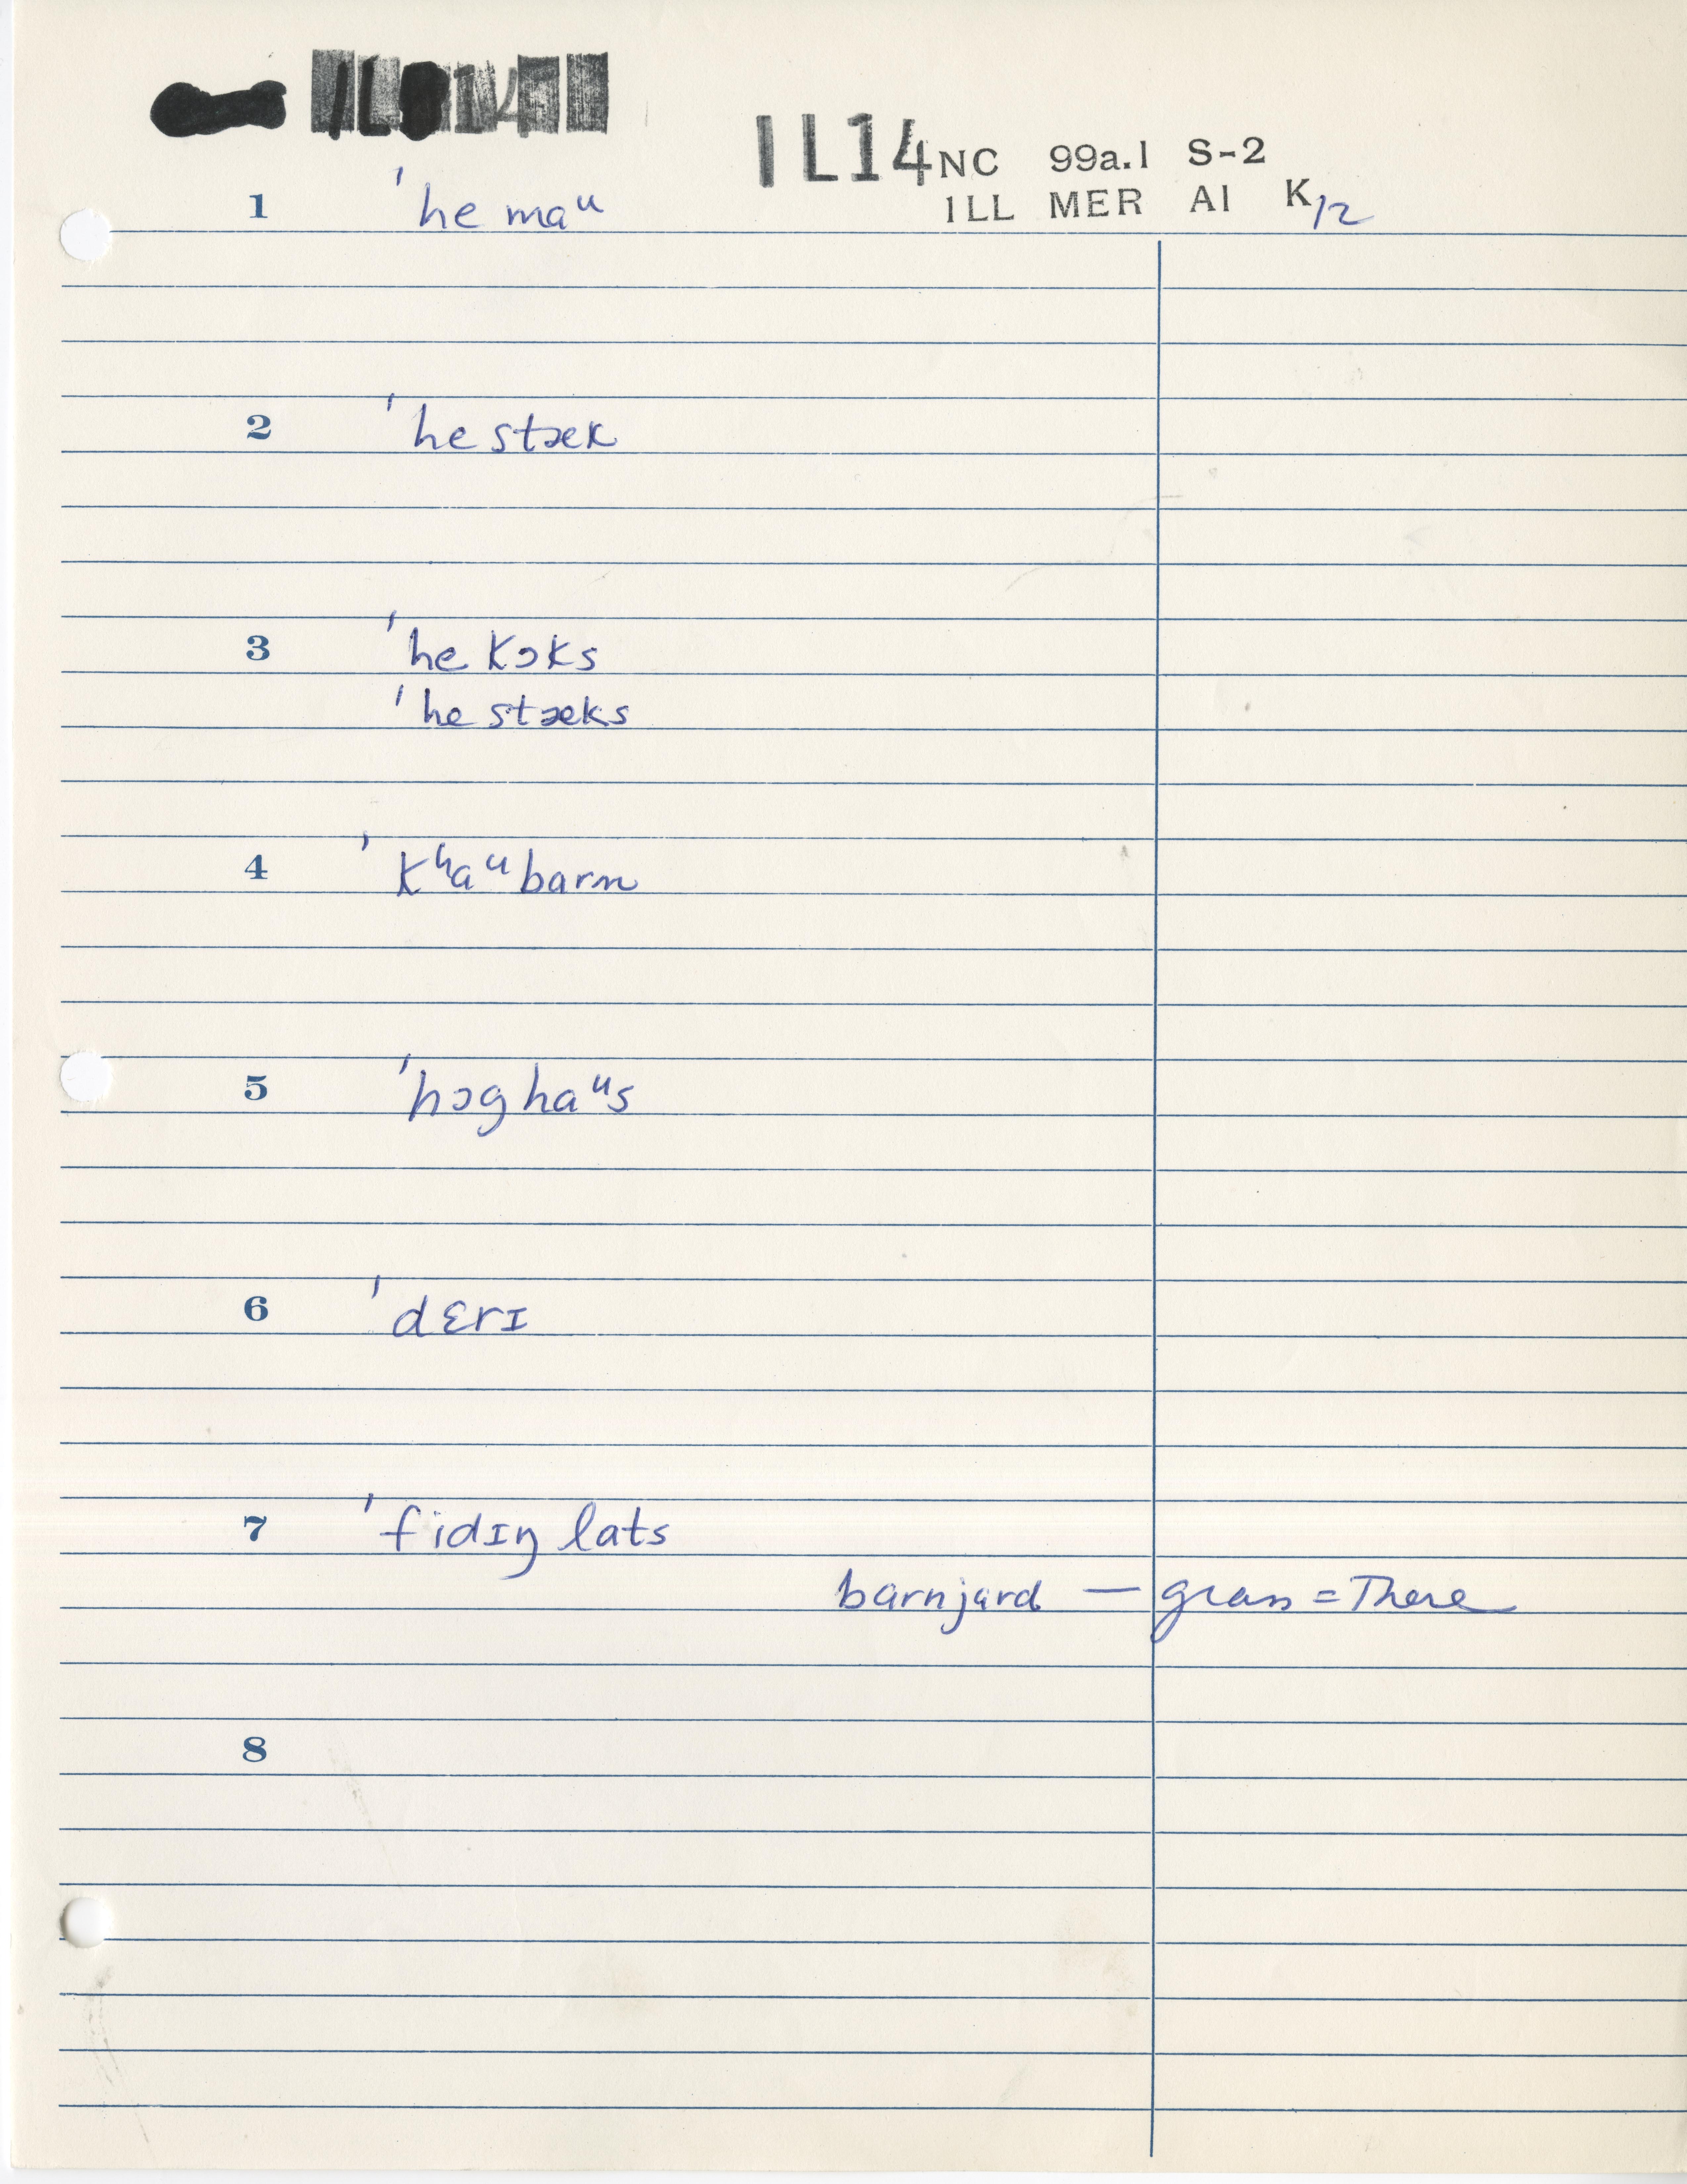 IL14 NC 99a.1 S-2
ILL MER A1 K12
1 ˈhemaᵘ
2 ˈhestæk
3 ˈhekɔks
ˈhestæks
4 ˈkʰaᵘbarn
5 ˈhɔghaᵘs
6 ˈdɛrɪ
7 ˈfidɪŋ lats
barnjard — grass = There
8